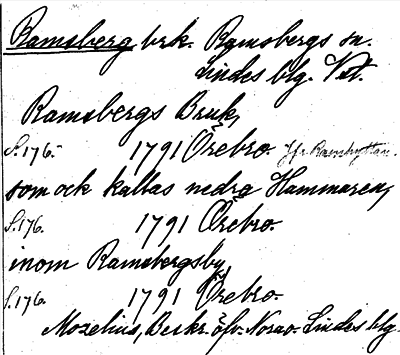 Ramsberg brk. Ramsbergs sn.
Lindes blg. Vstl.
Ramsbergs Bruk,
S. 176. 1791 Örebro. Jfr Ramshyttan.
som ock kallas nedra Hammaren,
S. 176. 1791 Örebro.
inom Ramsbergsby
S. 176. 1791 Örebro.
Mozelius, Beskr. öfv. Nora o. Lindes blg.